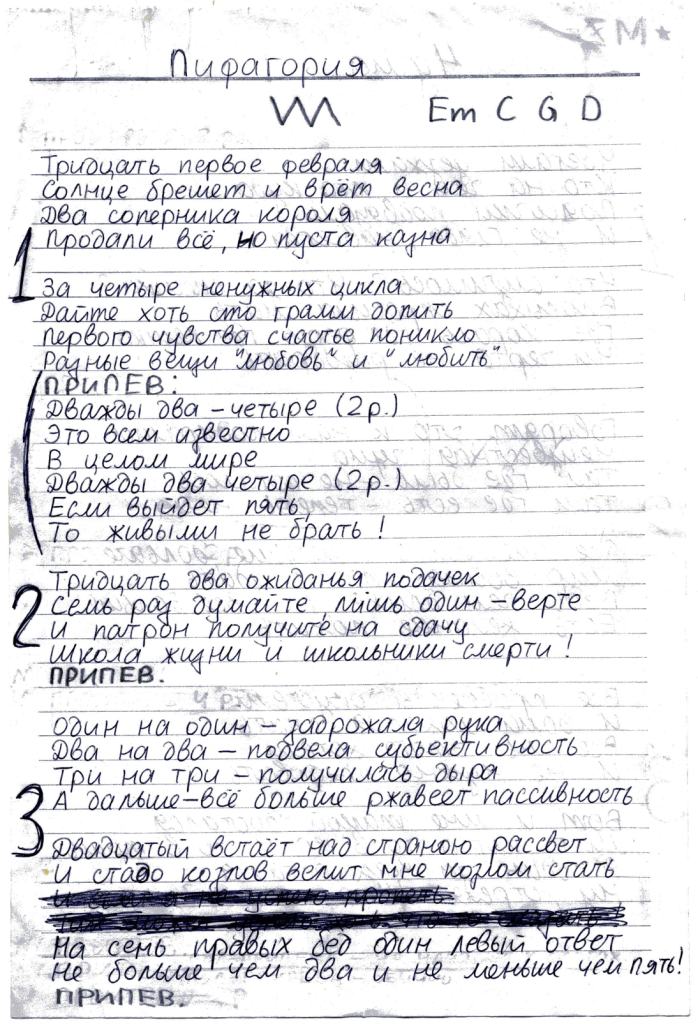 Пифагория
Em C G D
Тридцать первое февраля
Солнце брешет и врёт весна
Два соперника короля
Продали всё, но пуста казна
1
За четыре ненужных цикла
Дайте хоть сто грамм допить
Первого чувства счастье поникло
Разные вещи "любовь" и "любить"
ПРИПЕВ:
Дважды два – четыре (2 р.)
Это всем известно
В целом мире
Дважды два четыре (2 р.)
Если выйдет пять
То живыми не брать!
2
Тридцать два ожиданья подачек
Семь раз думайте, лишь один – верте
И патрон получите на сдачу
Школа жизни и школьники смерти!
ПРИПЕВ.
Один на один – задрожала рука
Два на два – подвела субъективность
Три на три – получилась дыра
А дальше – всё больше ржавеет пассивность
3
Двадцатый встаёт над страною рассвет
И стадо козлов велит мне козлом стать
На семь правых бед один левый ответ
Не больше чем два и не меньше чем пять!
ПРИПЕВ.